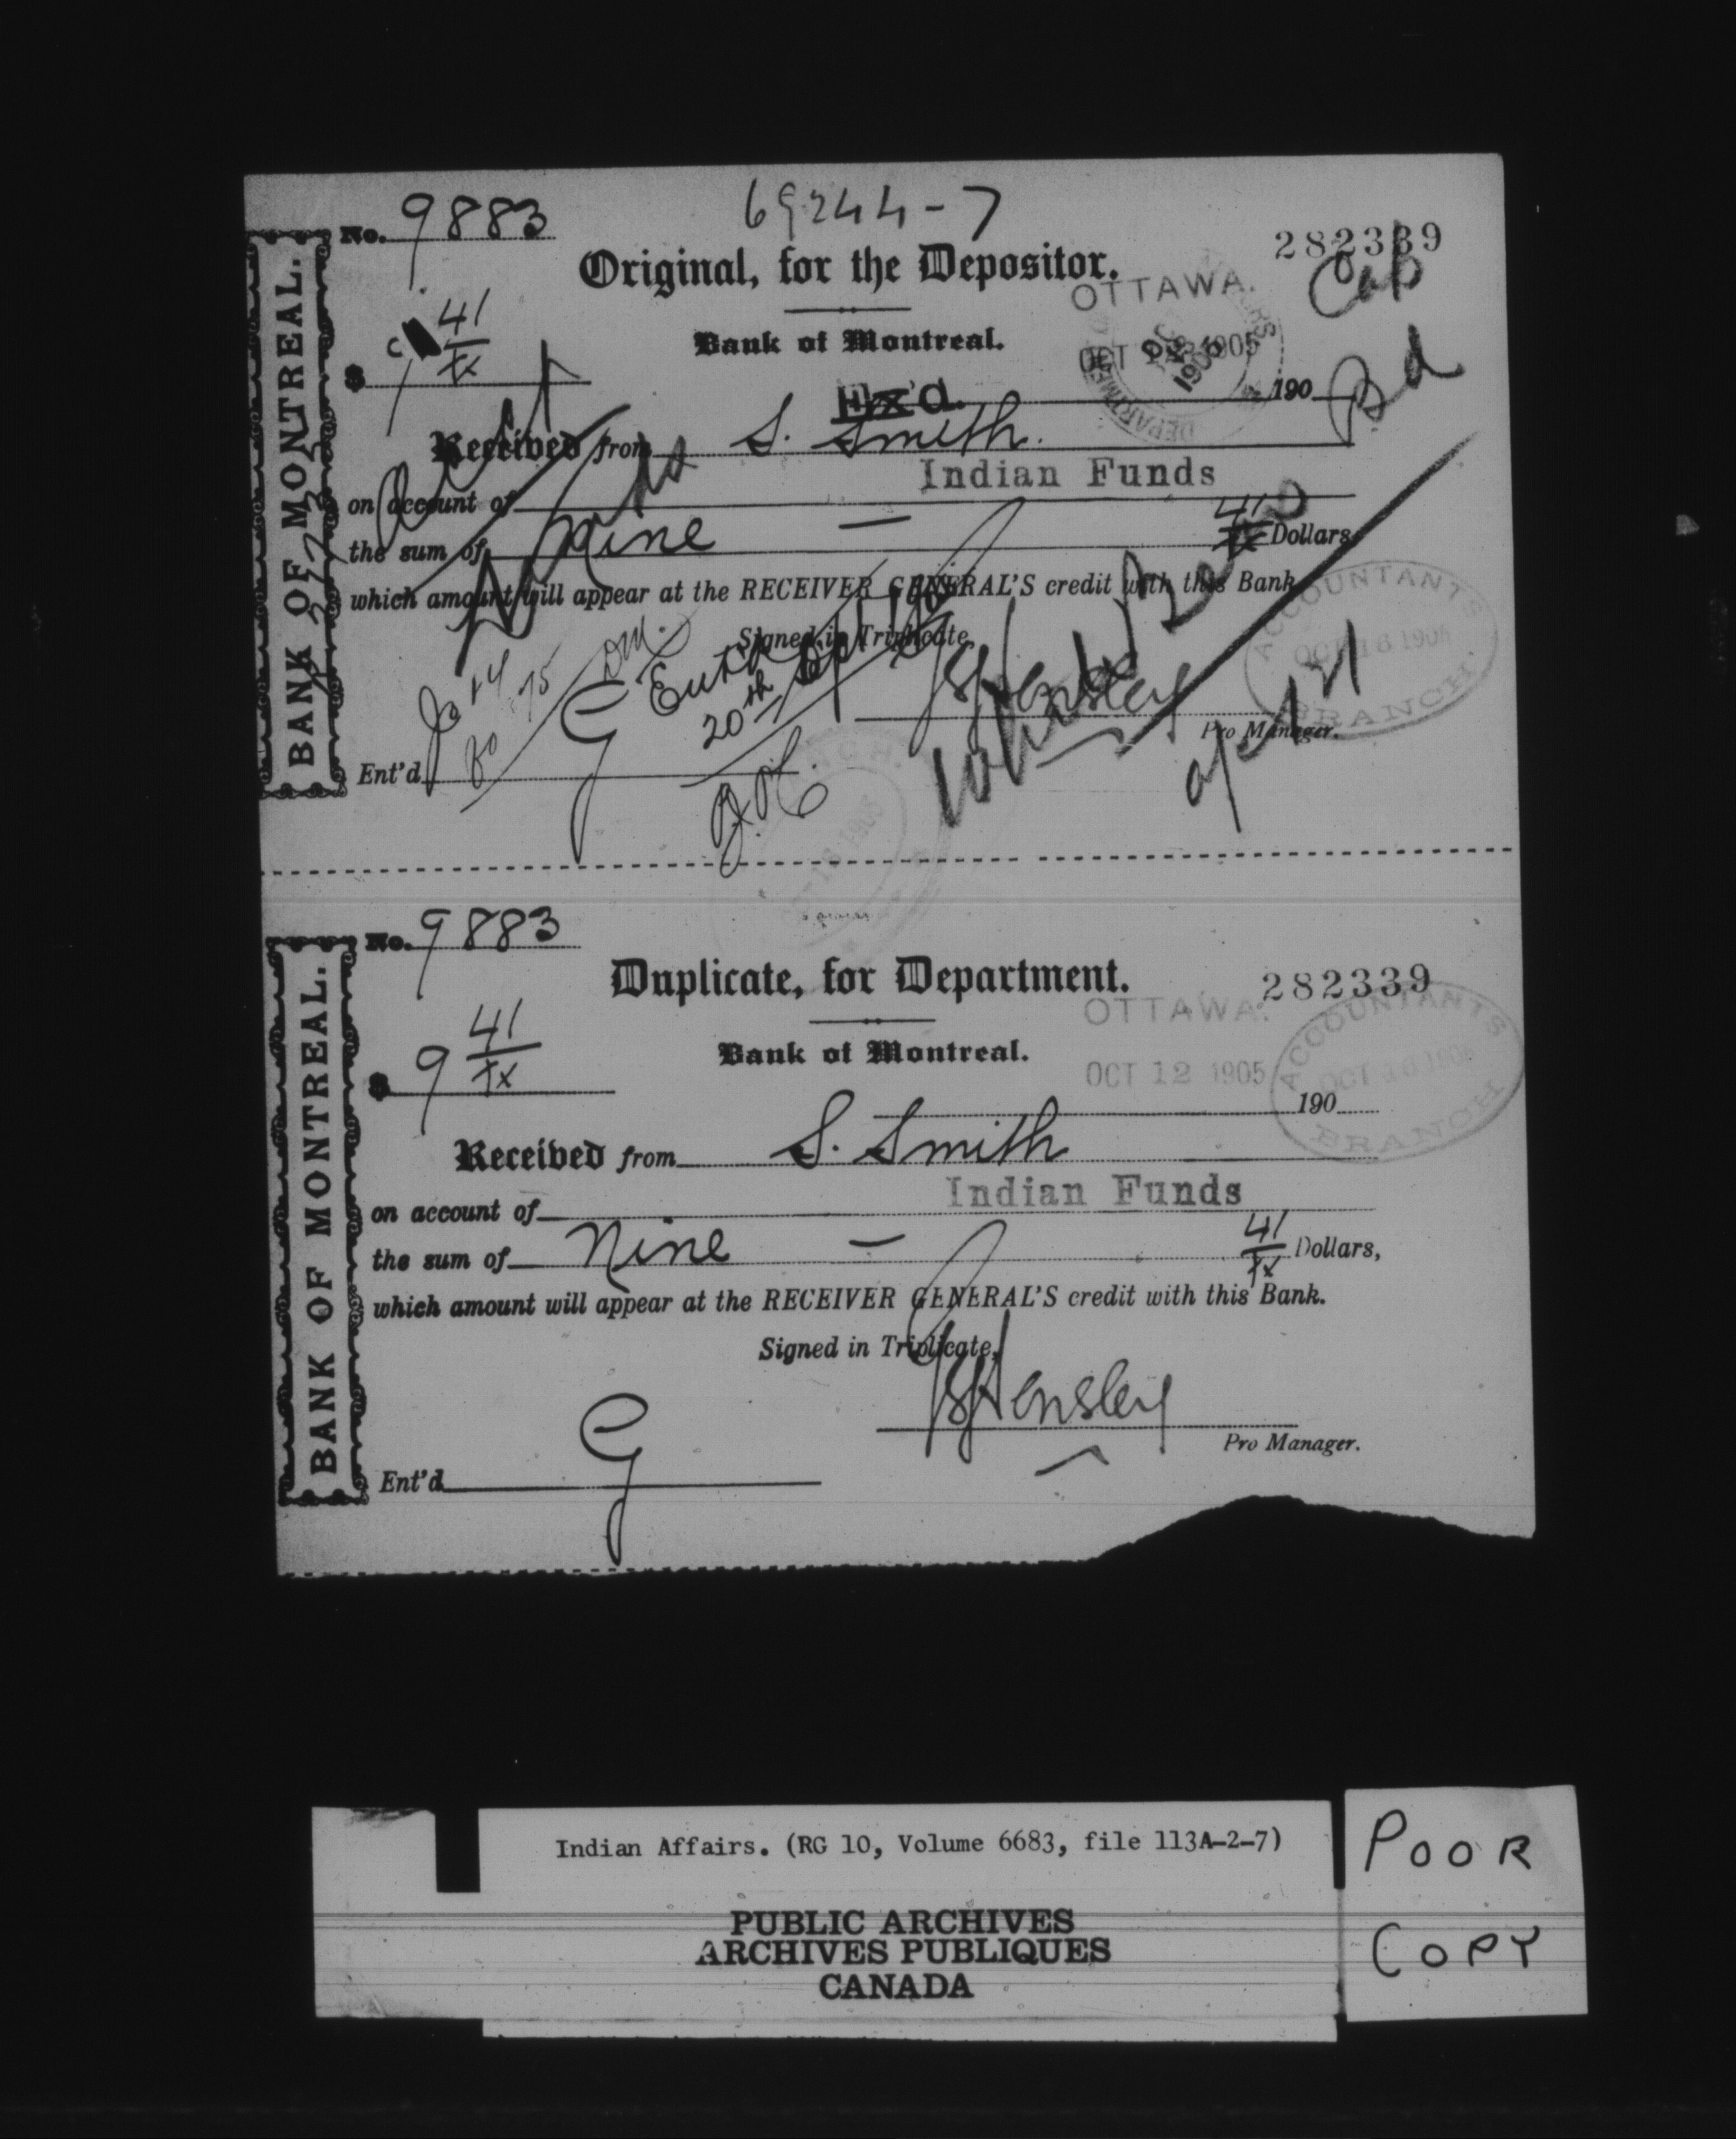 69244-7
No. 9883
282339
Original, for the Depositor.
OTTAWA.
$ 41/xx
Bank of Montreal.
OCT 12 1905
Ex'd.
190
Received from S. Smith.
Indian Funds
on account of
the sum of Nine — 41/xx Dollars,
which amount will appear at the RECEIVER GENERAL'S credit with this Bank.
Signed in Triplicate,
ACCOUNTANTS
OCT 16 1905
BRANCH.
20th
Hensley
Pro Manager.
Ent'd G
BANK OF MONTREAL.
No. 9883
Duplicate, for Department.
282339
OTTAWA.
$ 9 41/xx
Bank of Montreal.
OCT 12 1905
ACCOUNTANTS
OCT 16 1905
BRANCH
190
Received from S. Smith
Indian Funds
on account of
the sum of Nine — 41/xx Dollars,
which amount will appear at the RECEIVER GENERAL'S credit with this Bank.
Signed in Triplicate,
Hensley
Pro Manager.
Ent'd G
BANK OF MONTREAL.
Indian Affairs. (RG 10, Volume 6683, file 113A-2-7)
PUBLIC ARCHIVES
ARCHIVES PUBLIQUES
CANADA
POOR
COPY